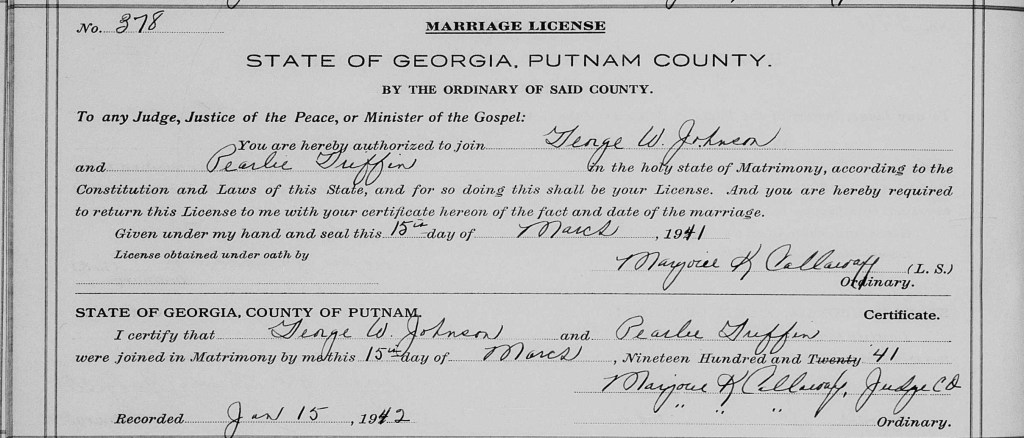 No. 378 MARRIAGE LICENSE
STATE OF GEORGIA, PUTNAM COUNTY.
BY THE ORDINARY OF SAID COUNTY.
To any Judge, Justice of the Peace, or Minister of the Gospel:
You are hereby authorized to join George W. Johnson
and Pearlie Griffin in the holy state of Matrimony, according to the
Constitution and Laws of this State, and for so doing this shall be your License. And you are hereby required
to return this License to me with your certificate hereon of the fact and date of the marriage.
Given under my hand and seal this 15th day of March, 1941
License obtained under oath by
Marjorie K Callaway (L. S.)
Ordinary.
STATE OF GEORGIA, COUNTY OF PUTNAM. Certificate.
I certify that George W. Johnson and Pearlie Griffin
were joined in Matrimony by me this 15th day of March, Nineteen Hundred and Twenty '41
Marjorie K Callaway, Judge C O
" " "
Recorded Jan 15, 1942 Ordinary.